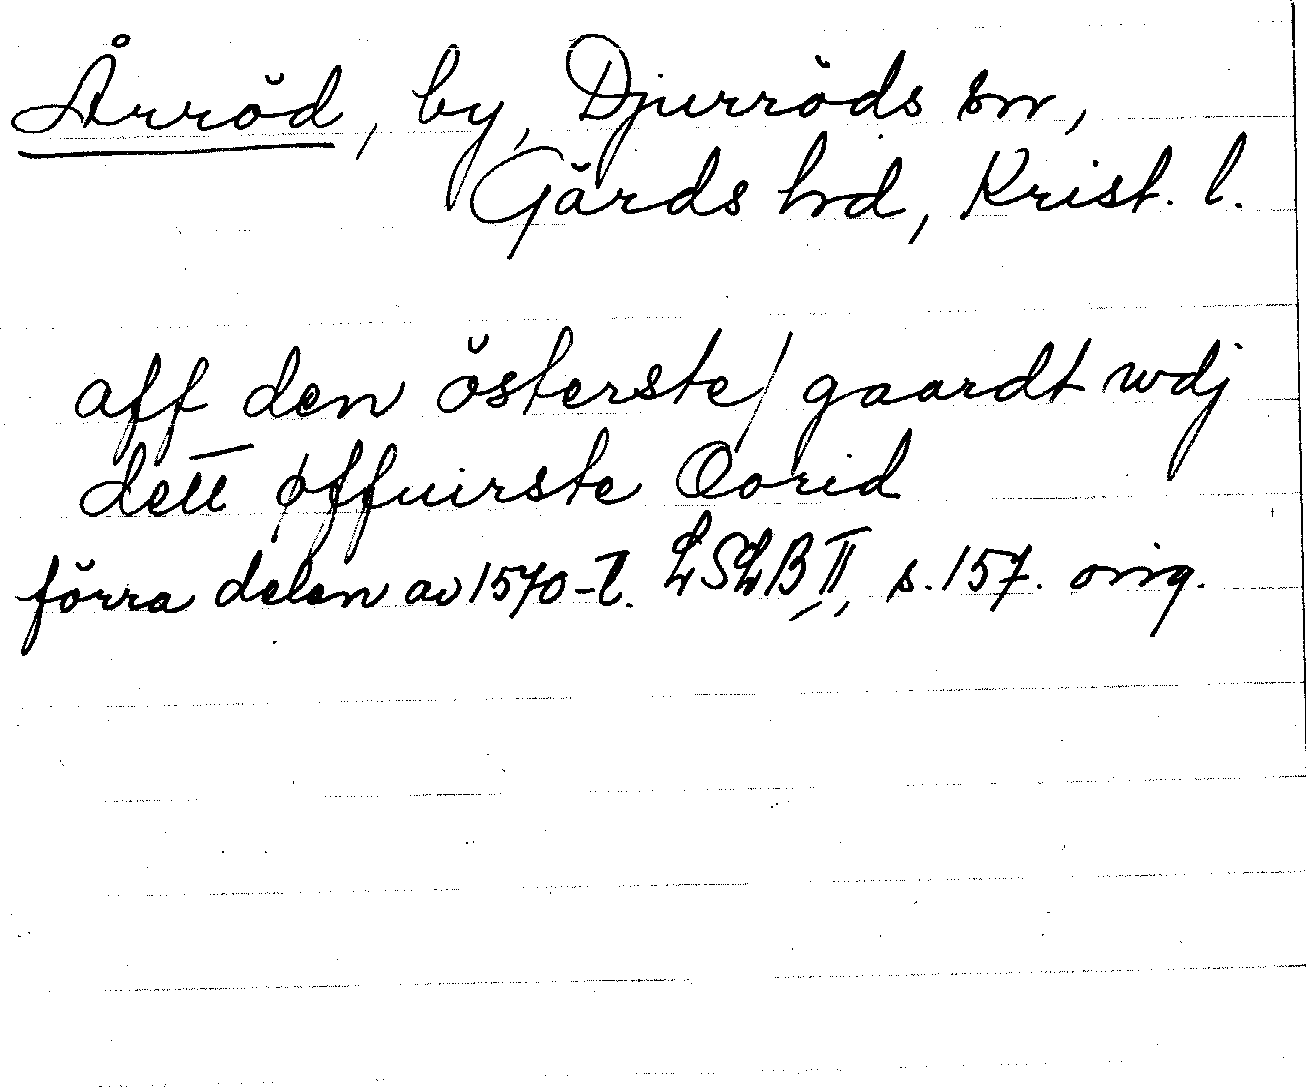 Årröd, by, Djurröds sn,
Gärds hd, Krist. l.
aff den österste/gaardt wdj
dett øffuirste Oorid
förra delen av 1570-t. LSLB II, s. 157. orig.